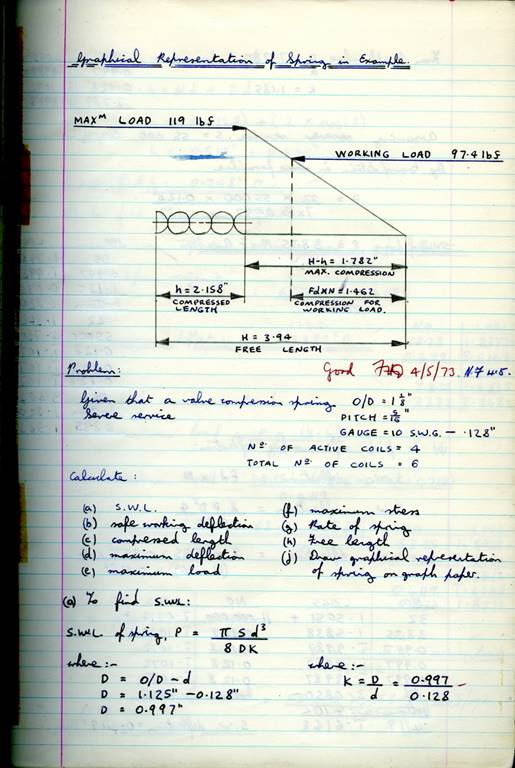 Graphical Representation of Spring in Example.
MAXᴹ LOAD 119 lbf
WORKING LOAD 97.4 lbf
H-h = 1.782"
MAX. COMPRESSION
h = 2.158"
COMPRESSED
LENGTH
Fd×N = 1.462
COMPRESSION FOR
WORKING LOAD.
H = 3.94
FREE LENGTH
Good 4/5/73
Problem:
Given that a valve compression spring. O/D = 1 1/8"
PITCH = 5/16"
GAUGE = 10 S.W.G. — .128"
Nº OF ACTIVE COILS = 4
TOTAL Nº OF COILS = 6
Calculate:
(a) S.W.L.
(b) safe working deflection
(c) compressed length
(d) maximum deflection
(e) maximum load
(f) maximum stress
(g) Rate of spring
(h) Free length
(j) Draw graphical representation
of spring on graph paper.
(a) To find S.W.L:
S.W.L of spring, P = π S d³ / 8 D K
where:-
D = O/D - d
D = 1.125" - 0.128"
D = 0.997"
where:-
K = D/d = 0.997/0.128